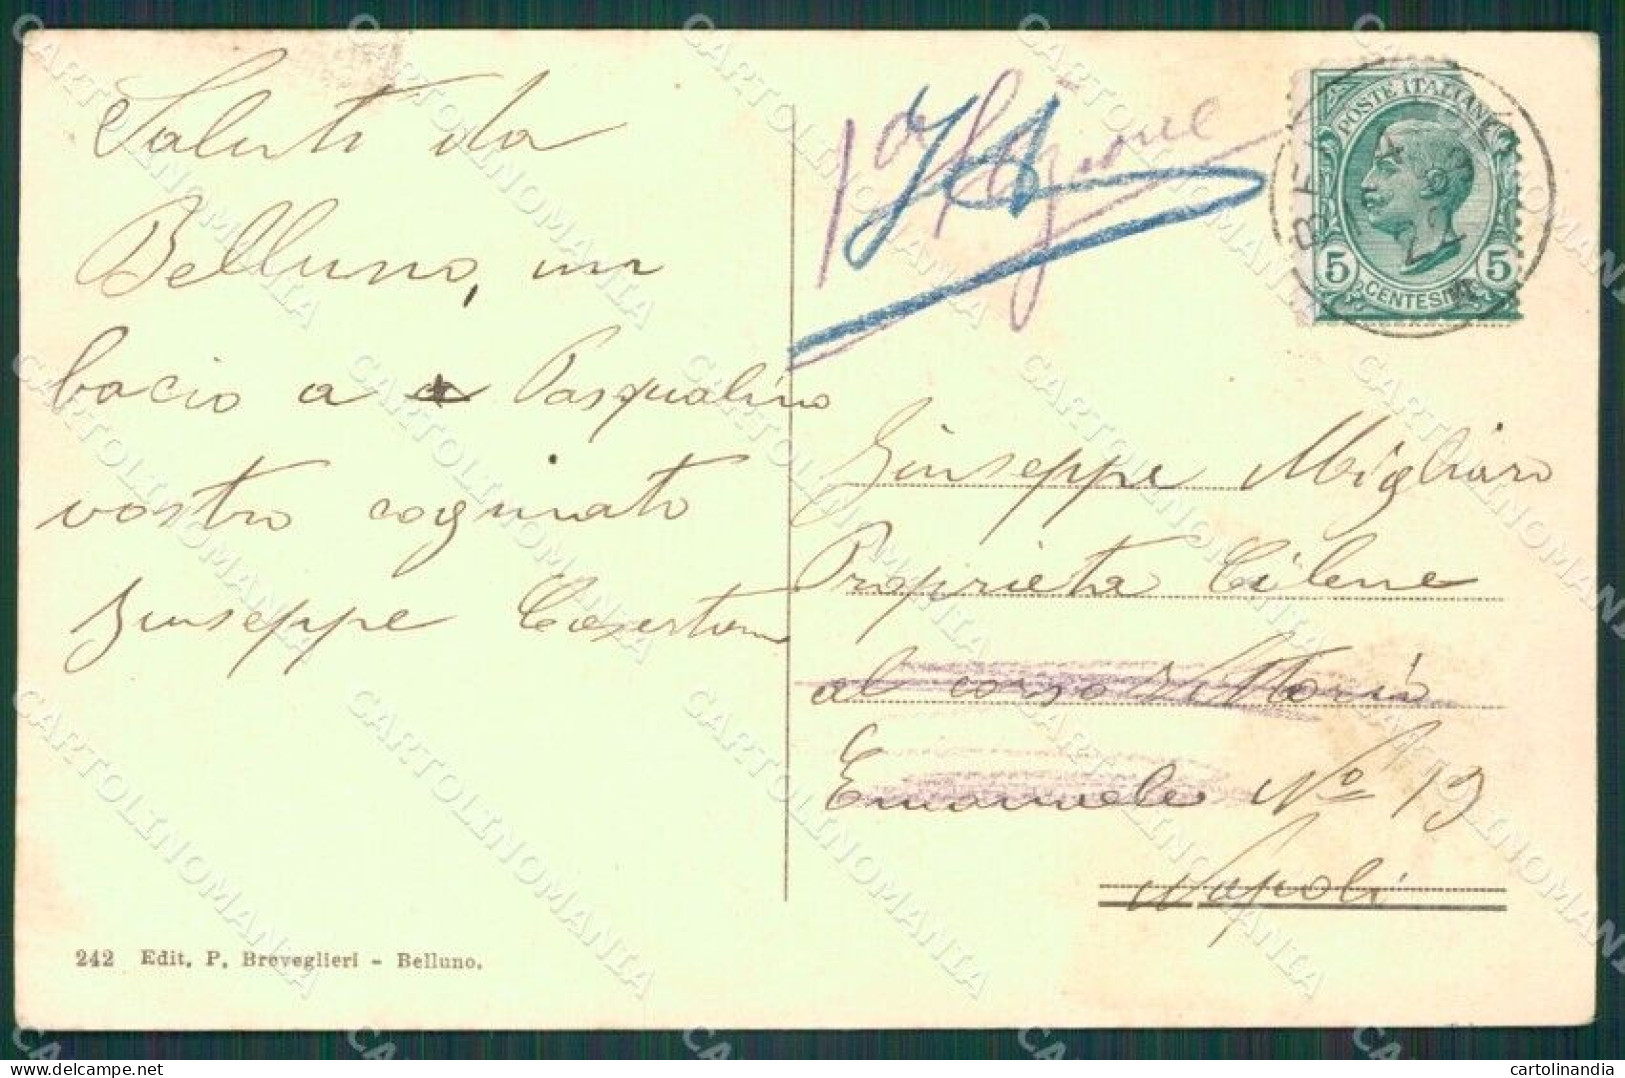 Saluti da
Belluno, un
bacio a a Pasqualino
vostro cogniato
Giuseppe Casertano
242 Edit. P. Breveglieri - Belluno.
POSTE ITALIANE
5 CENTESIMI 5
Giuseppe Migliaro
Proprietà Cilene
al corso Vittorio
Emanuele No 19
Napoli
CARTOLINOMANIA
cartolinandia